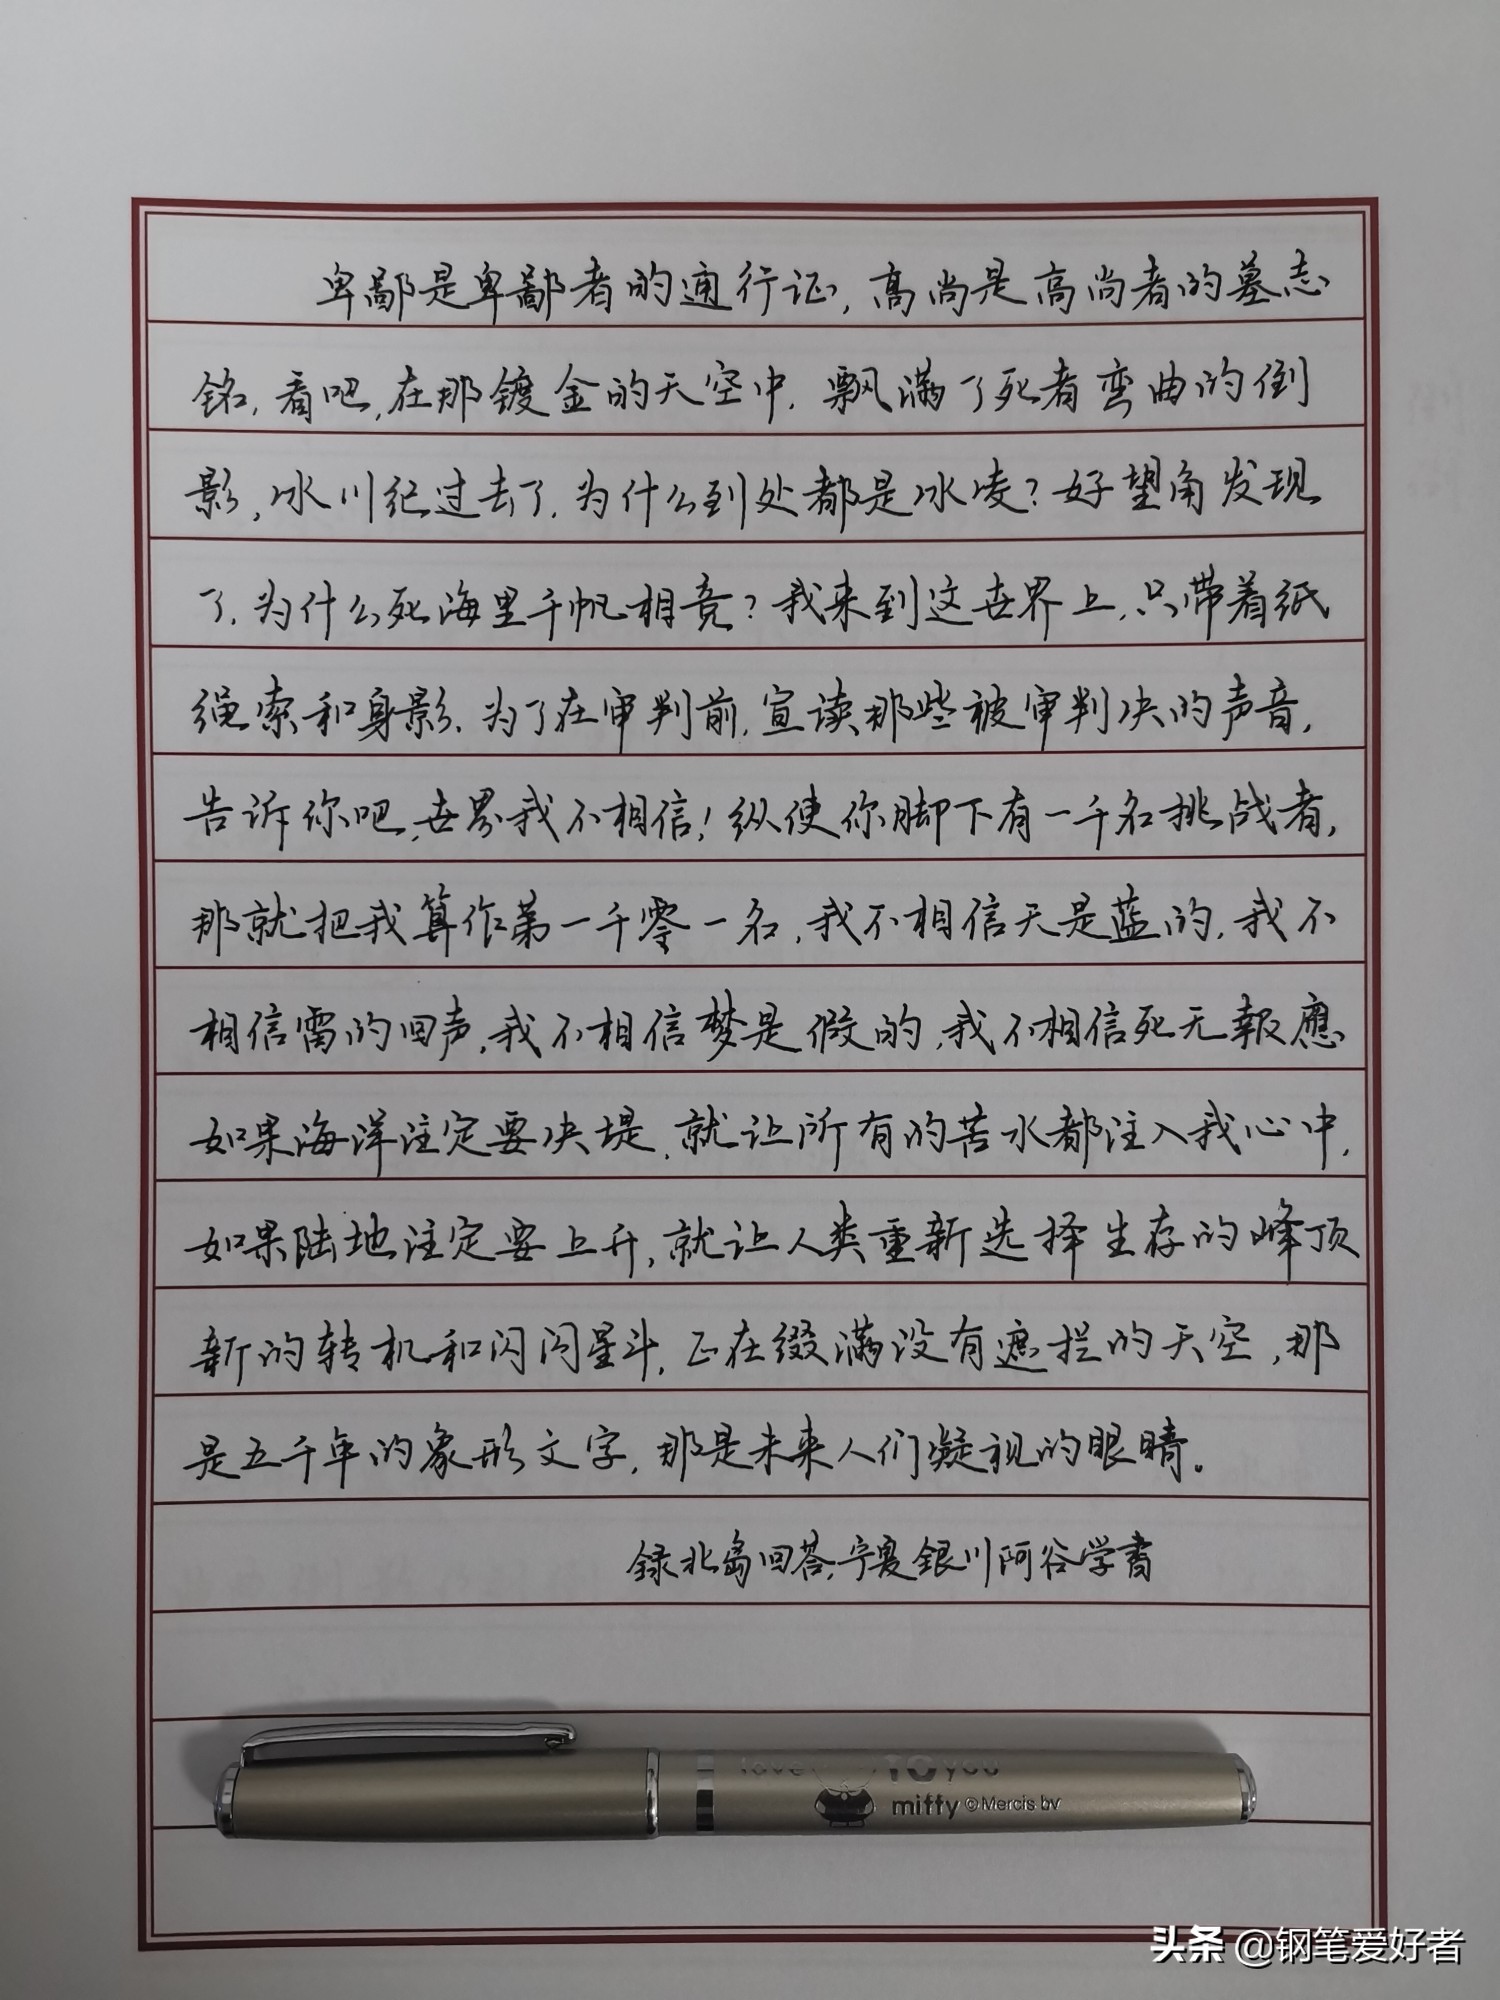 卑鄙是卑鄙者的通行证，高尚是高尚者的墓志
铭，看吧，在那镀金的天空中，飘满了死者弯曲的倒
影，冰川纪过去了，为什么到处都是冰凌？好望角发现
了，为什么死海里千帆相竞？我来到这世界上，只带着纸
绳索和身影，为了在审判前，宣读那些被审判决的声音，
告诉你吧，世界我不相信！纵使你脚下有一千名挑战者，
那就把我算作第一千零一名，我不相信天是蓝的，我不
相信雷的回声，我不相信梦是假的，我不相信死无報應
如果海洋注定要决堤，就让所有的苦水都注入我心中，
如果陆地注定要上升，就让人类重新选择生存的峰顶
新的转机和闪闪星斗，正在缀满没有遮拦的天空，那
是五千年的象形文字，那是未来人们凝视的眼睛。
録北岛回答，宁夏银川阿谷学書
love TO you
miffy ©Mercis bv
头条 @钢笔爱好者